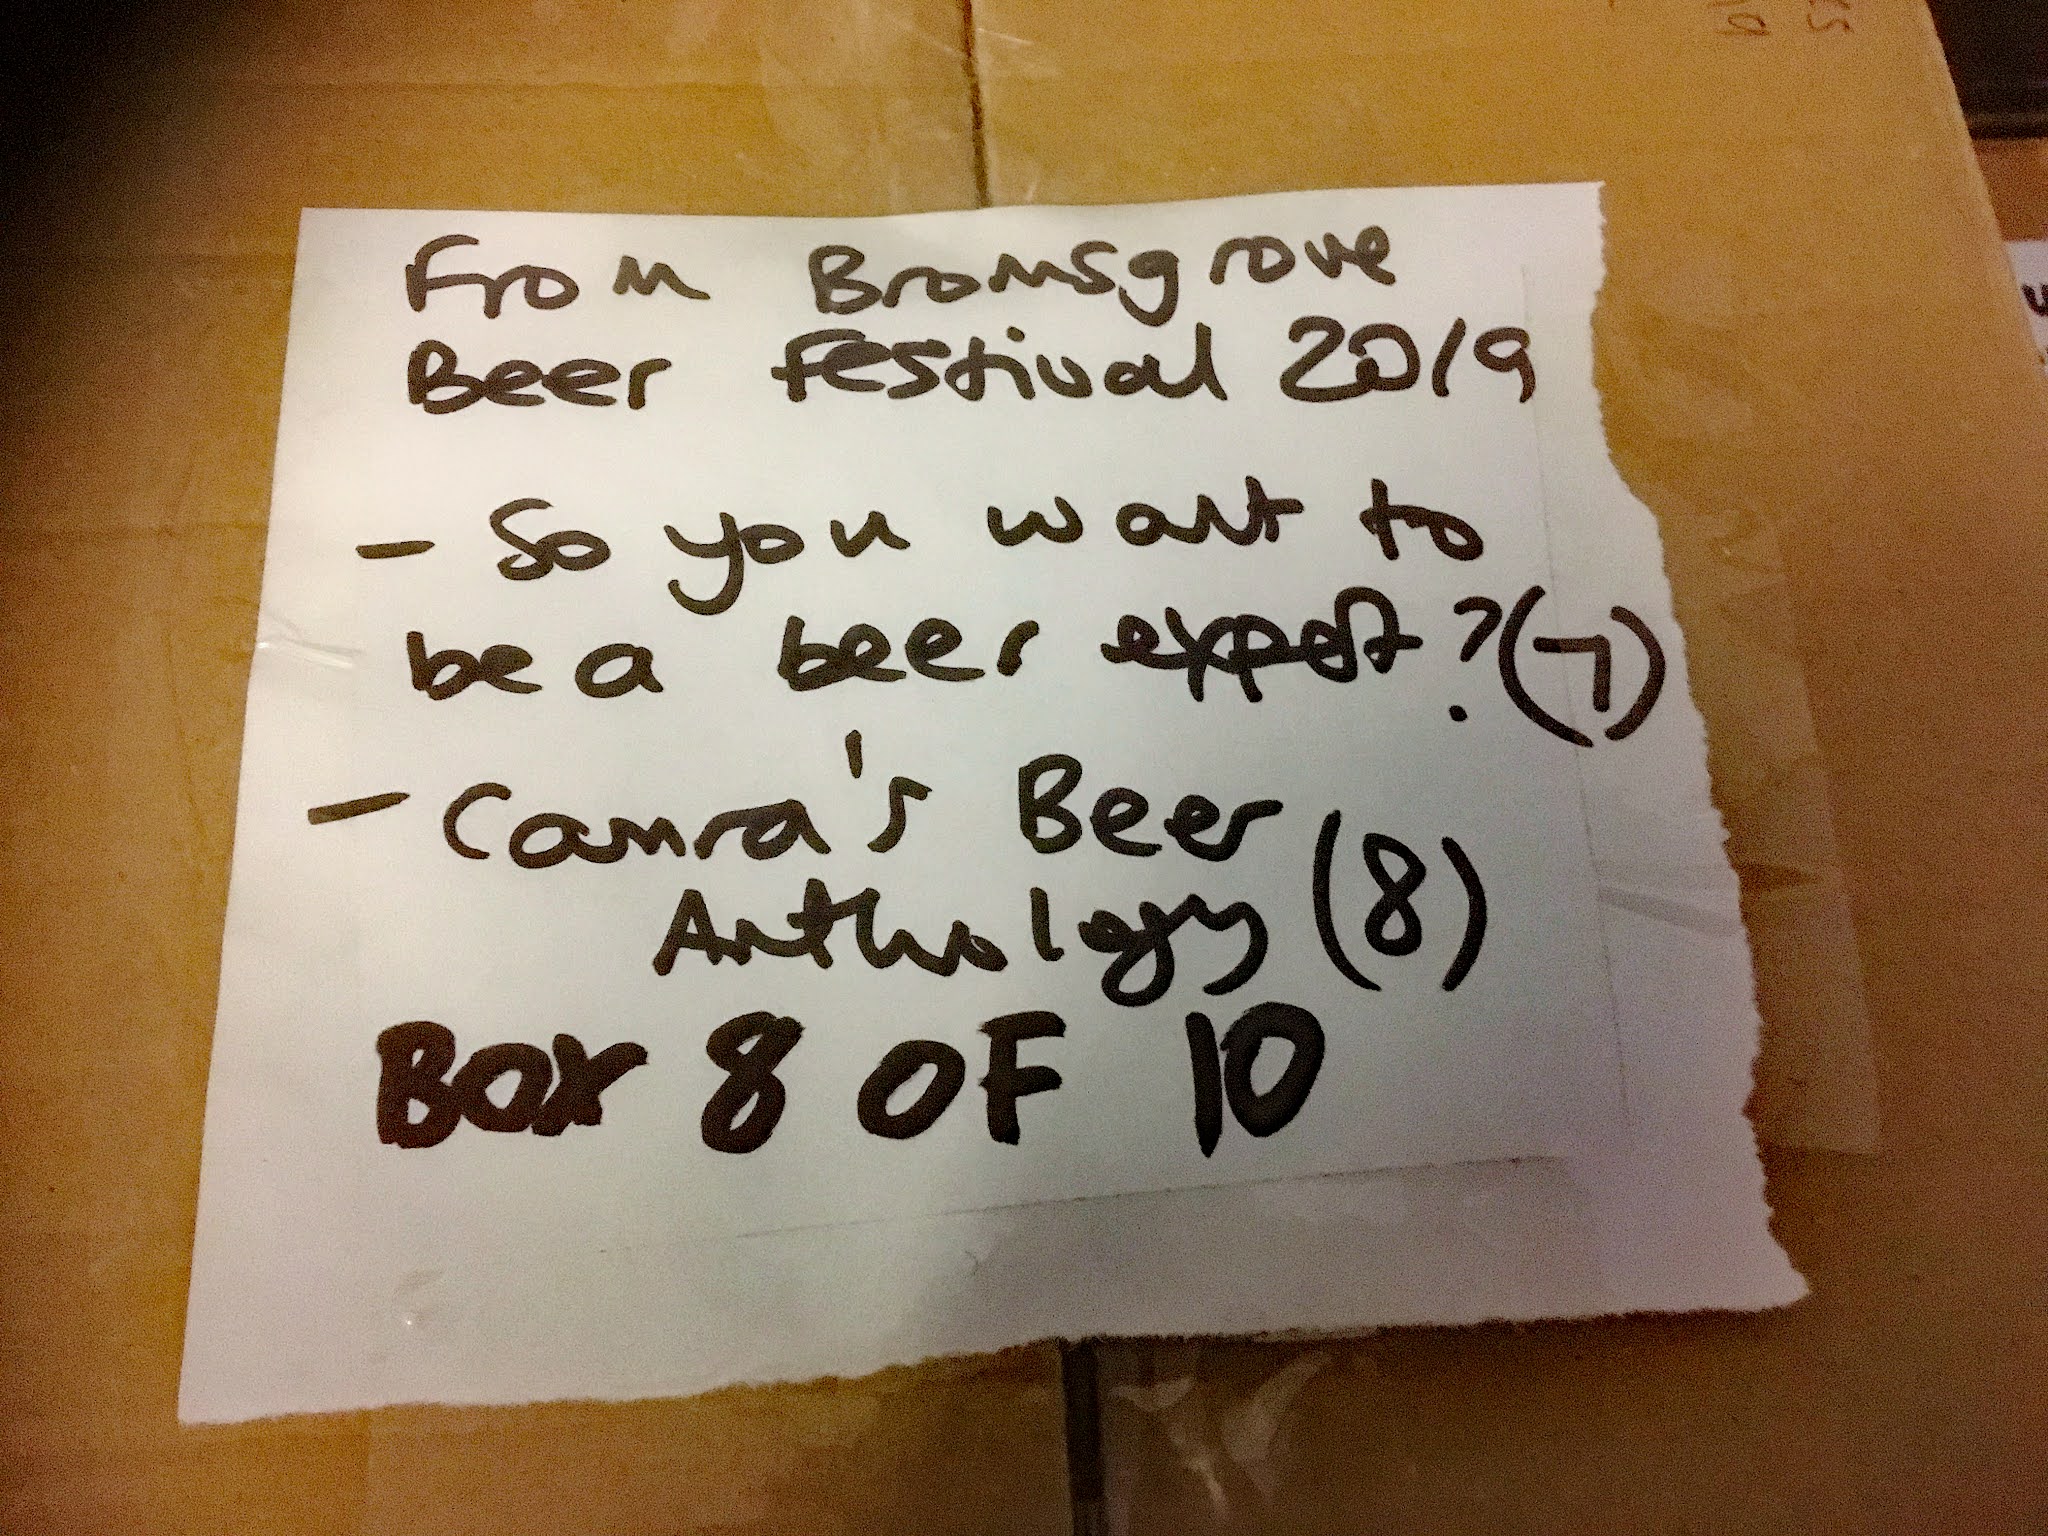 From Bromsgrove
Beer Festival 2019
- So you want to
be a beer expert? (7)
- Camra's Beer
Anthology (8)
BOX 8 OF 10